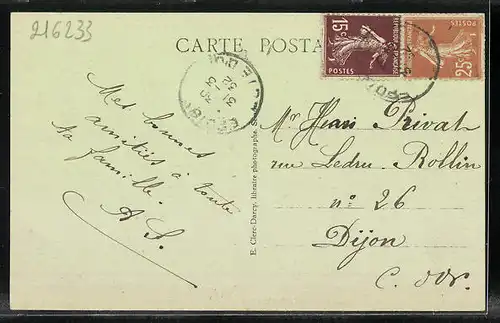 216233
CARTE POSTA
15c
POSTES
25c
POSTES
Mes bonnes
amitiés à toute
ta famille.
A S.
E. Clerc-Darcy, libraire photographe, S
Mr Henri Privat
rue Ledru Rollin
n° 26
Dijon
C. d'Or.